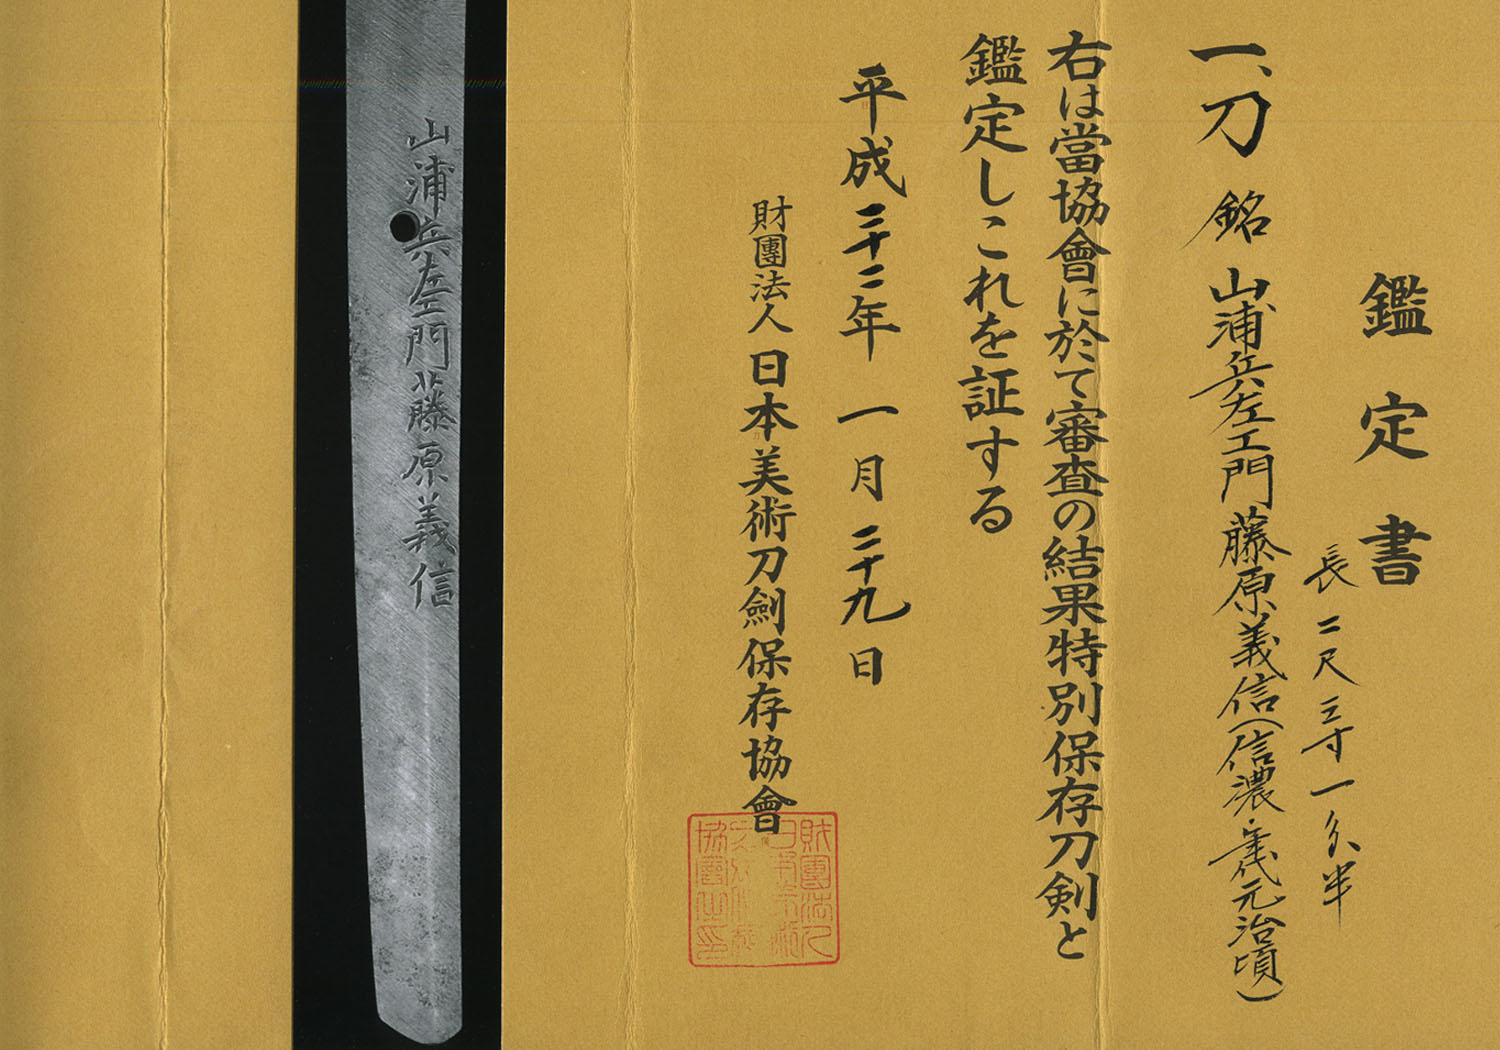 鑑定書
一、刀 銘 山浦兵左エ門藤原義信(信濃・年代元治頃)
長二尺三寸一分半
右は當協會に於て審査の結果特別保存刀剣と
鑑定しこれを証する
平成二十二年一月二十九日
財團法人日本美術刀劍保存協會
山浦兵左エ門藤原義信